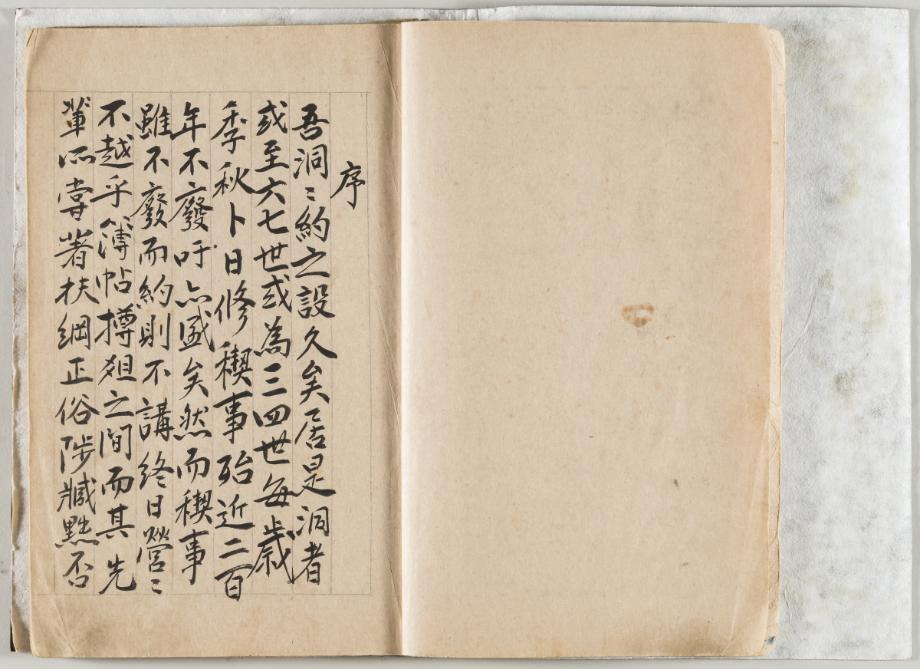 序
吾洞〻約之設久矣居是洞者
或至六七世或為三四世每歲
季秋卜日修稧事殆近二百
年不廢吁亦盛矣然而稧事
雖不廢而約則不講終日營〻
不越乎簿帖樽爼之間而其先
輩所嘗著扶綱正俗陟臧黜否